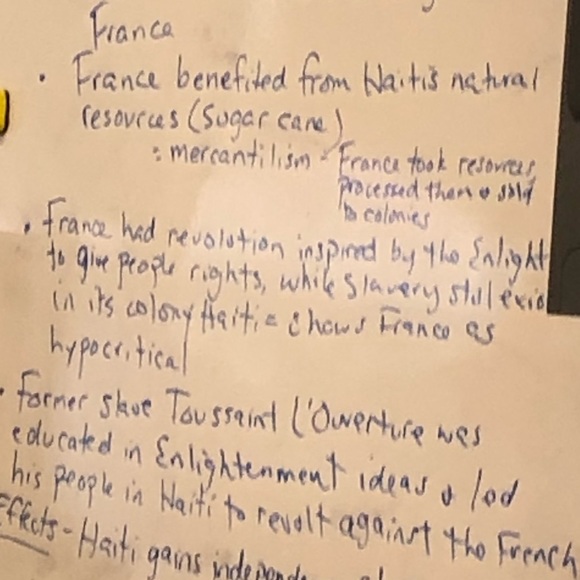 France
• France benefited from Haiti's natural
resources (Sugar cane)
: mercantilism - France took resources
processed them & sold
to colonies
• France had revolution inspired by the Enlight
to give people rights, while Slavery still exis
in its colony Haiti = shows France as
hypocritical
• Former slave Toussaint L'Ouverture was
educated in Enlightenment ideas & led
his people in Haiti to revolt against the French
Effects - Haiti gains